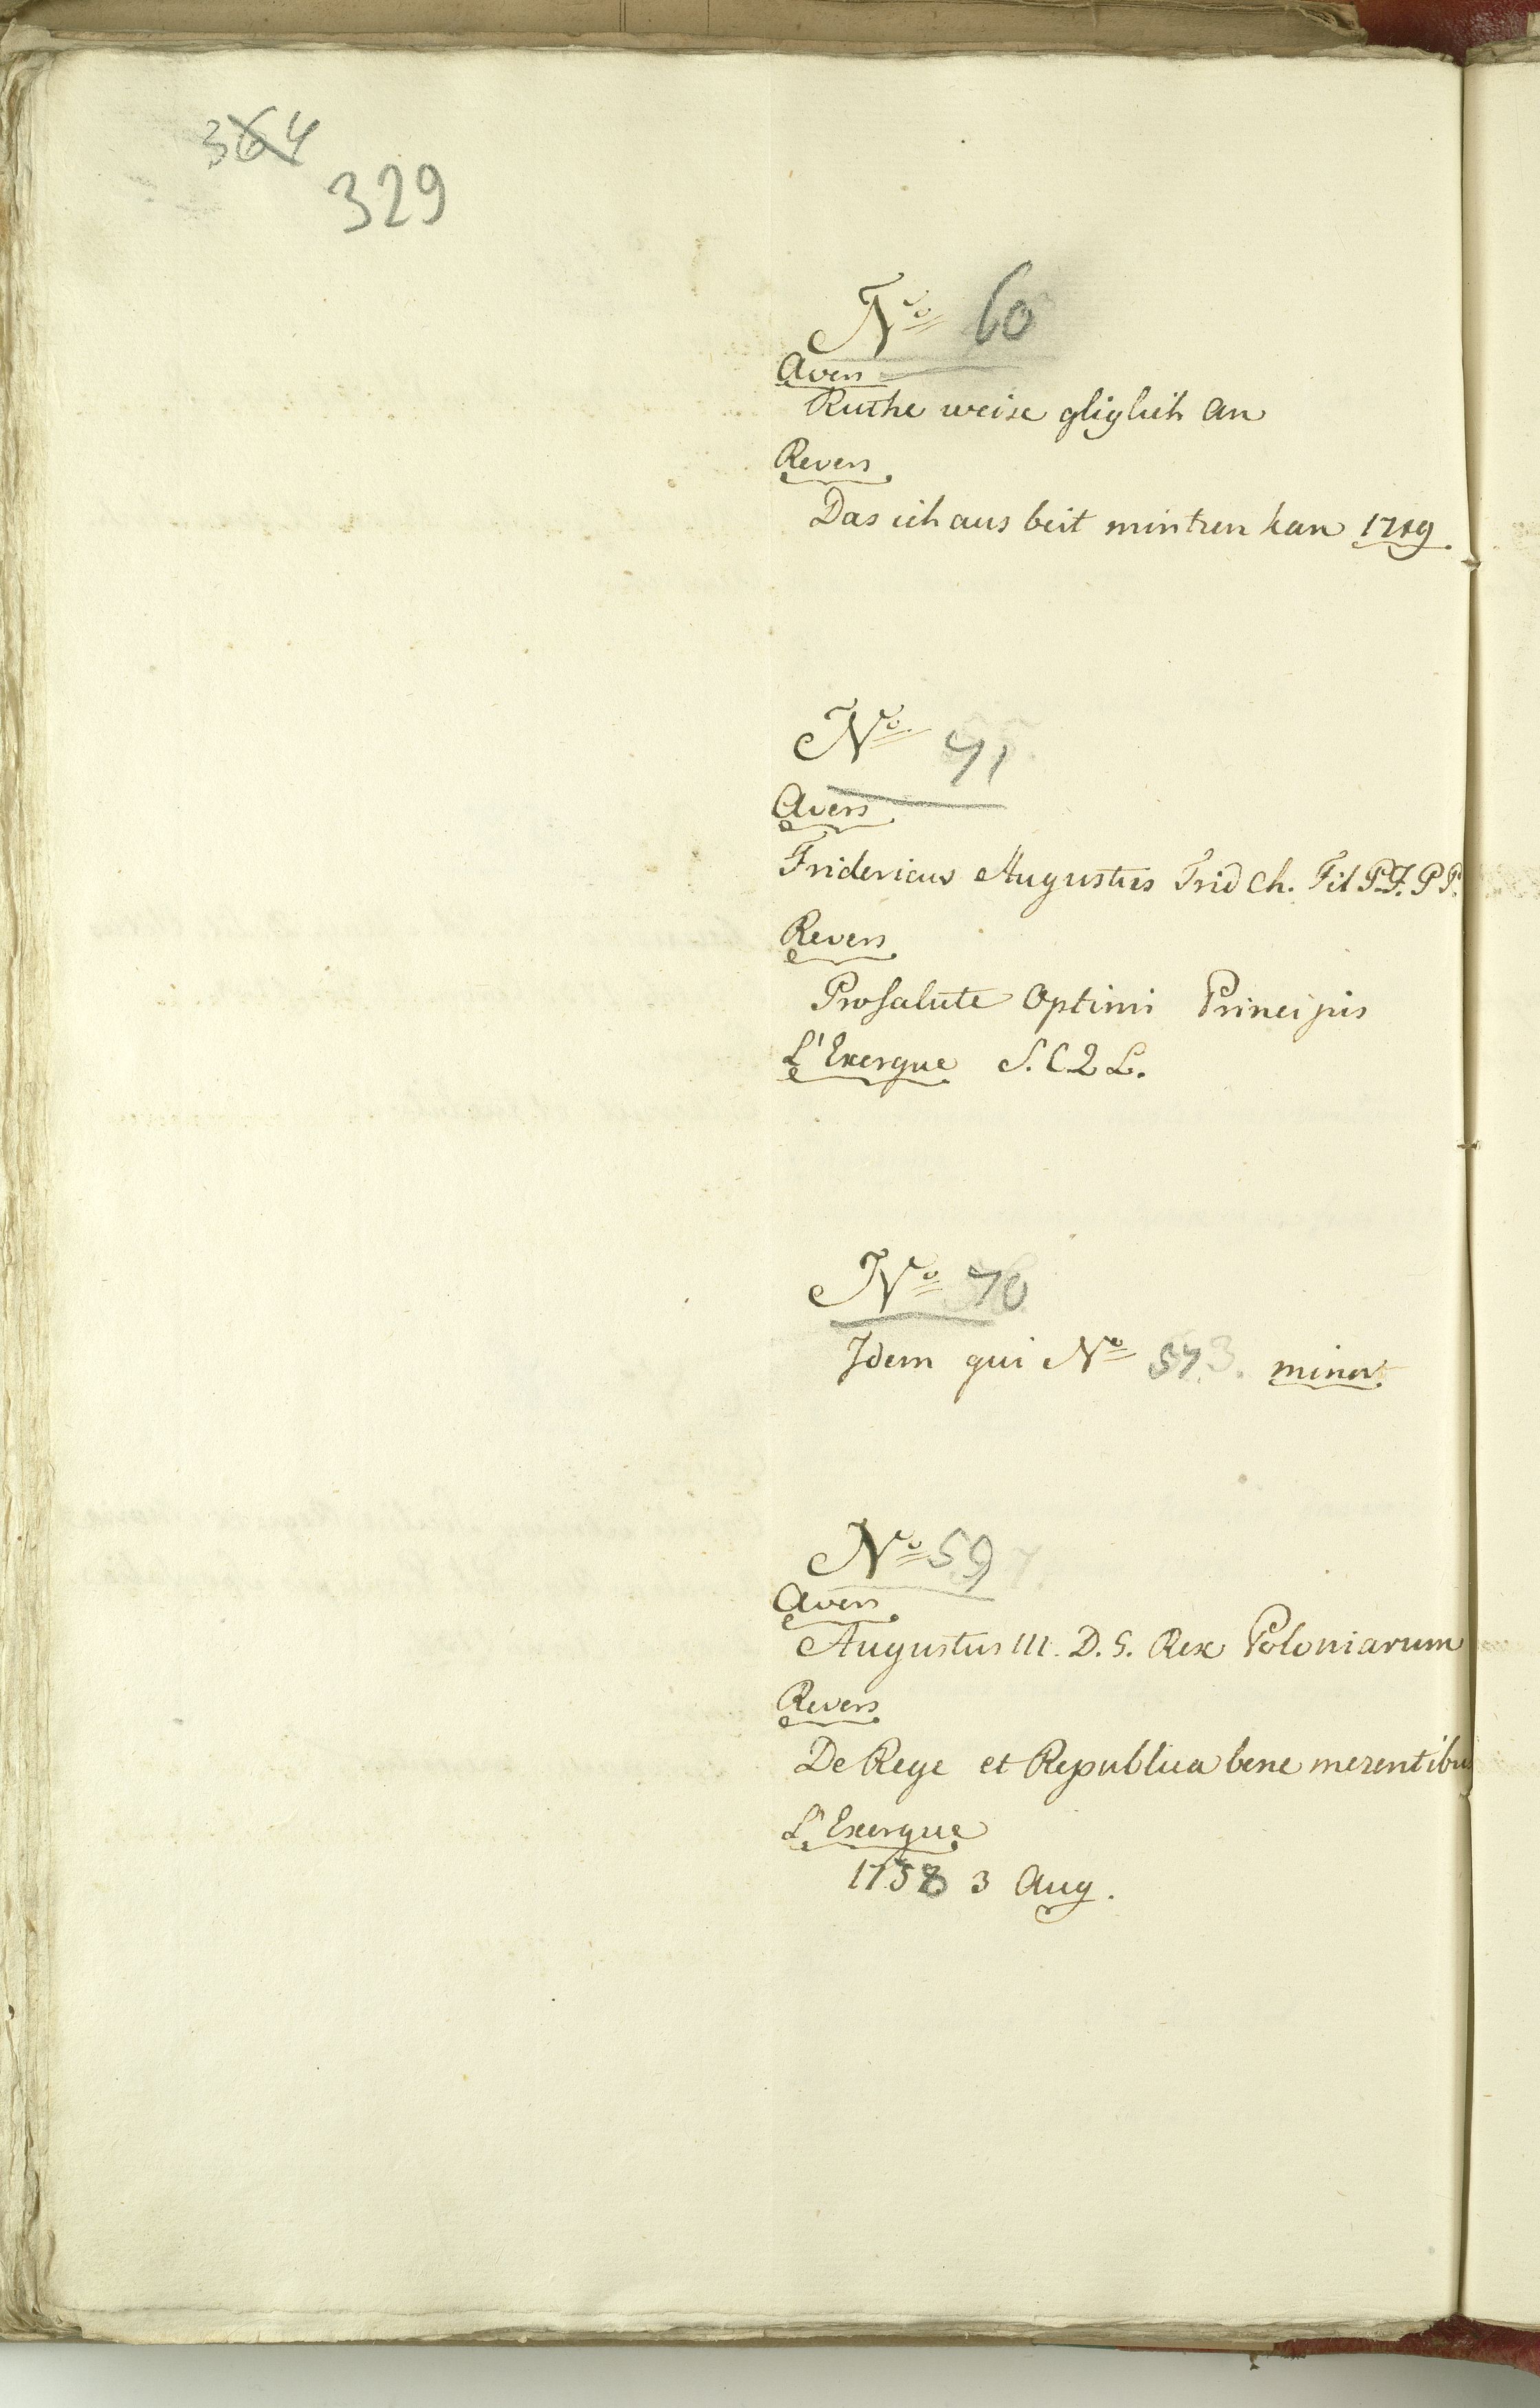 364
329
No 60
Avers
Ruthe weise gliglich an
Revers
Das ich aus beit mintzen kan 1719
No 71
Avers
Fridericus Augustus Frid Ch. Fil P.J. P P.
Revers
Pro salute Optimi Principis
L'Exergue S. C. 2 L.
No 70
Idem qui No 57. minor.
No 59
Avers
Augustus III. D. G. Rex Poloniarum
Revers
De Rege et Republica bene merentibus
L'Exergue
1758 3 Aug.